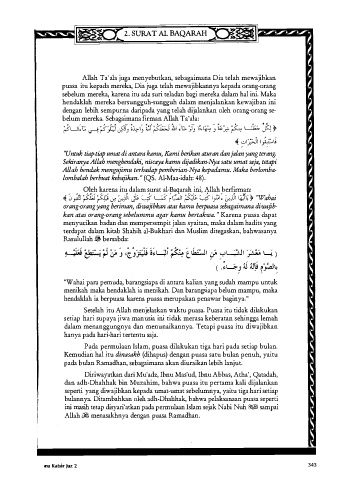 2. SURAT AL BAQARAH
Allah Ta'ala juga menyebutkan, sebagaimana Dia telah mewajibkan
puasa itu kepada mereka, Dia juga telah mewajibkannya kepada orang-orang
sebelum mereka, karena itu ada suri teladan bagi mereka dalam hal ini. Maka
hendaklah mereka bersungguh-sungguh dalam menjalankan kewajiban ini
dengan lebih sempurna daripada yang telah dijalankan oleh orang-orang se-
belum mereka. Sebagaimana firman Allah Ta'ala:
﴿ لِكُلٍّ جَعَلْنَا مِنكُمْ شِرْعَةً وَ مِنْهَاجًا وَلَوْ شَاءَ اللهُ لَجَعَلَكُمْ أُمَّةً وَاحِدَةً وَلَكِن لِّيَبْلُوَكُمْ فِي مَاءَاتَاكُمْ
فَاسْتَبِقُوا الْخَيْرَاتِ ﴾
"Untuk tiap-tiap umat di antara kamu, Kami berikan aturan dan jalan yang terang.
Sekiranya Allah menghendaki, niscaya kamu dijadikan-Nya satu umat saja, tetapi
Allah hendak mengujimu terhadap pemberian-Nya kepadamu. Maka berlomba-
lombalah berbuat kebajikan." (QS. Al-Maa-idah: 48).
Oleh karena itu dalam surat al-Baqarah ini, Allah berfirman:
﴿ يَاأَيُّهَا الَّذِينَ ءَامَنُوا كُتِبَ عَلَيْكُمُ الصِّيَامُ كَمَا كُتِبَ عَلَى الَّذِينَ مِن قَبْلِكُمْ لَعَلَّكُمْ تَتَّقُونَ ﴾ "Wahai
orang-orang yang beriman, diwajibkan atas kamu berpuasa sebagaimana diwajib-
kan atas orang-orang sebelummu agar kamu bertakwa." Karena puasa dapat
menyucikan badan dan mempersempit jalan syaitan, maka dalam hadits yang
terdapat dalam kitab Shahih al-Bukhari dan Muslim ditegaskan, bahwasanya
Rasulullah ﷺ bersabda:
( يَا مَعْشَرَ الشَّبَابِ مَنِ اسْتَطَاعَ مِنْكُمُ الْبَاءَةَ فَلْيَتَزَوَّجْ، وَ مَنْ لَمْ يَسْتَطِعْ فَعَلَيْهِ
بِالصَّوْمِ فَإِنَّهُ لَهُ وِجَاءٌ. )
"Wahai para pemuda, barangsiapa di antara kalian yang sudah mampu untuk
menikah maka hendaklah ia menikah. Dan barangsiapa belum mampu, maka
hendaklah ia berpuasa karena puasa merupakan penawar baginya."
Setelah itu Allah menjelaskan waktu puasa. Puasa itu tidak dilakukan
setiap hari supaya jiwa manusia ini tidak merasa keberatan sehingga lemah
dalam menanggungnya dan menunaikannya. Tetapi puasa itu diwajibkan
hanya pada hari-hari tertentu saja.
Pada permulaan Islam, puasa dilakukan tiga hari pada setiap bulan.
Kemudian hal itu dinasakh (dihapus) dengan puasa satu bulan penuh, yaitu
pada bulan Ramadhan, sebagaimana akan diuraikan lebih lanjut.
Diriwayatkan dari Mu'adz, Ibnu Mas'ud, Ibnu Abbas, Atha', Qatadah,
dan adh-Dhahhak bin Muzahim, bahwa puasa itu pertama kali dijalankan
seperti yang diwajibkan kepada umat-umat sebelumnya, yaitu tiga hari setiap
bulannya. Ditambahkan oleh adh-Dhahhak, bahwa pelaksanaan puasa seperti
ini masih tetap disyari'atkan pada permulaan Islam sejak Nabi Nuh sampai
Allah menasakhnya dengan puasa Ramadhan.
Katsir Juz 2
343